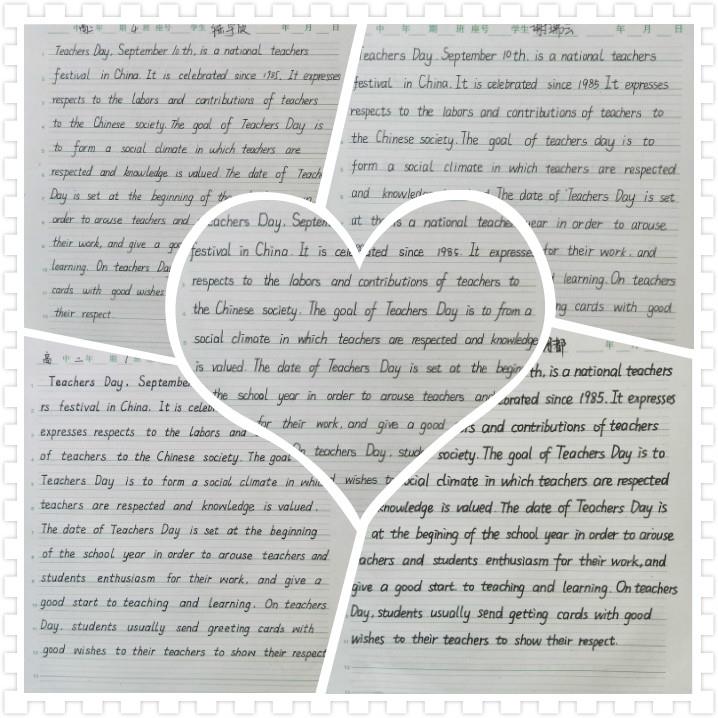 中 年 4 班 座号 学生 年 月 日
Teachers Day, September 10th, is a national teachers
festival in China. It is celebrated since 1985. It expresses
respects to the labors and contributions of teachers
to the Chinese society. The goal of Teachers Day is
to form a social climate in which teachers are
respected and knowledge is valued. The date of Teach
Day is set at the beginning of the
order to arouse teachers and
their work, and give a goo
learning. On teachers Da
cards with good wishes
their respect.
中 年 期 班 座号 学生 年 月 日
Teachers Day. September 10th. is a national teachers
festival in China. It is celebrated since 1985. It expresses
respects to the labors and contributions of teachers to
the Chinese society. The goal of teachers day is to
form a social climate in which teachers are respected
and knowledge The date of Teachers Day is set
at th year in order to arouse
for their work. and
learning. On teachers
ng cards with good
eachers Day, Septem
is a national teache
festival in China. It is celebrated since 1985. It expresse
respects to the labors and contributions of teachers to
the Chinese society. The goal of Teachers Day is to from a
social climate in which teachers are respected and knowledge
is valued. The date of Teachers Day is set at the begin
the school year in order to arouse teachers and
for their work, and give a good
On teachers Day, stude
wishes to
高 中 二 年 期 1
Teachers Day, September
rs festival in China. It is celebr
expresses respects to the labors and
of teachers to the Chinese society. The goal
Teachers Day is to form a social climate in which
teachers are respected and knowledge is valued.
The date of Teachers Day is set at the beginning
of the school year in order to arouse teachers and
students enthusiasm for their work, and give a
good start to teaching and learning. On teachers
Day, students usually send greeting cards with
good wishes to their teachers to show their respect
年 月 日
th, is a national teachers
ebrated since 1985. It expresses
rs and contributions of teachers
society. The goal of Teachers Day is to
ocial climate in which teachers are respected
knowledge is valued. The date of Teachers Day is
at the begining of the school year in order to arouse
achers and students enthusiasm for their work, and
give a good start to teaching and learning. On teachers
Day, students usually send getting cards with good
wishes to their teachers to show their respect.